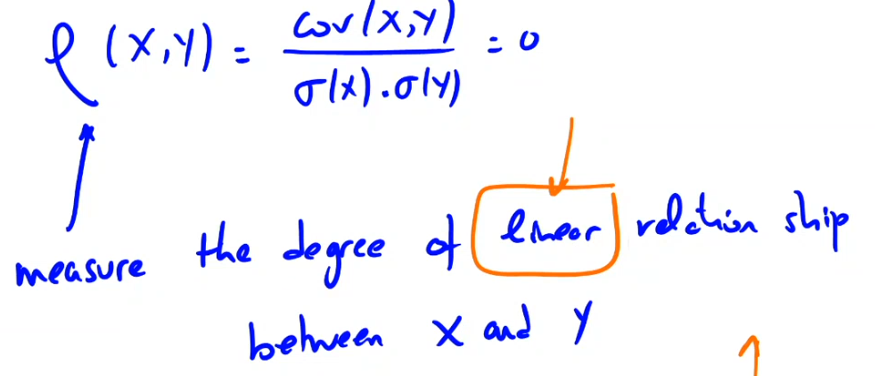 ρ (X,Y) = cov(X,Y) / σ(X).σ(Y) = 0
measure the degree of linear relation ship
between X and Y